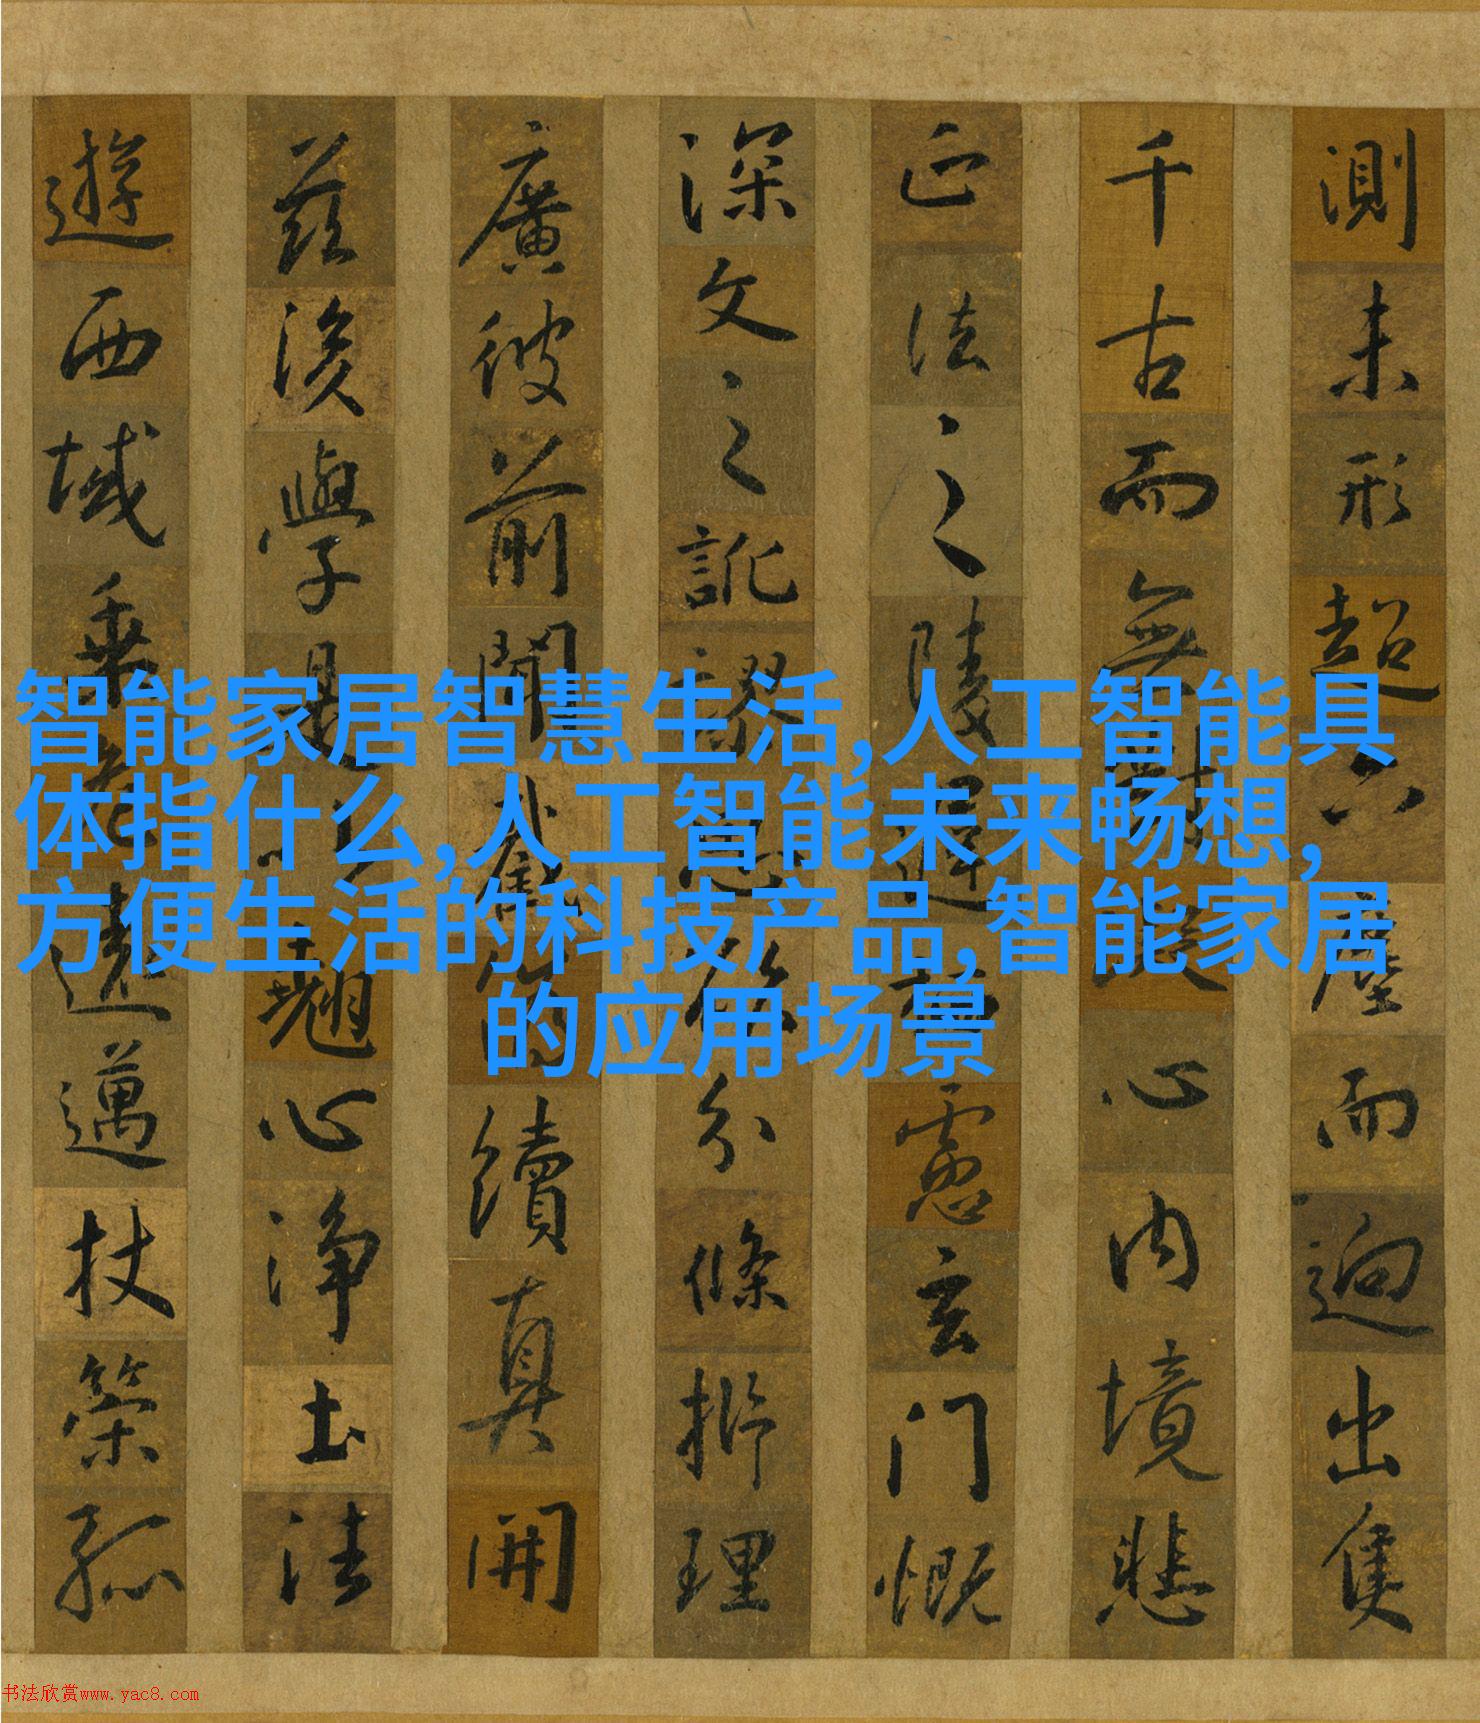 測未形超六塵而迥出隻
千古而無對凝心內境悲
正法之陵遲栖慮玄門慨
深文之訛謬思欲分條析理
廣彼前聞截偽續真開
茲後學是以翹心淨土法
遊西域乘危遠邁杖策孤
智能家居智慧生活,人工智能具
体指什么,人工智能未来畅想,
方便生活的科技产品,智能家居
的应用场景
书法欣赏www.yac8.com